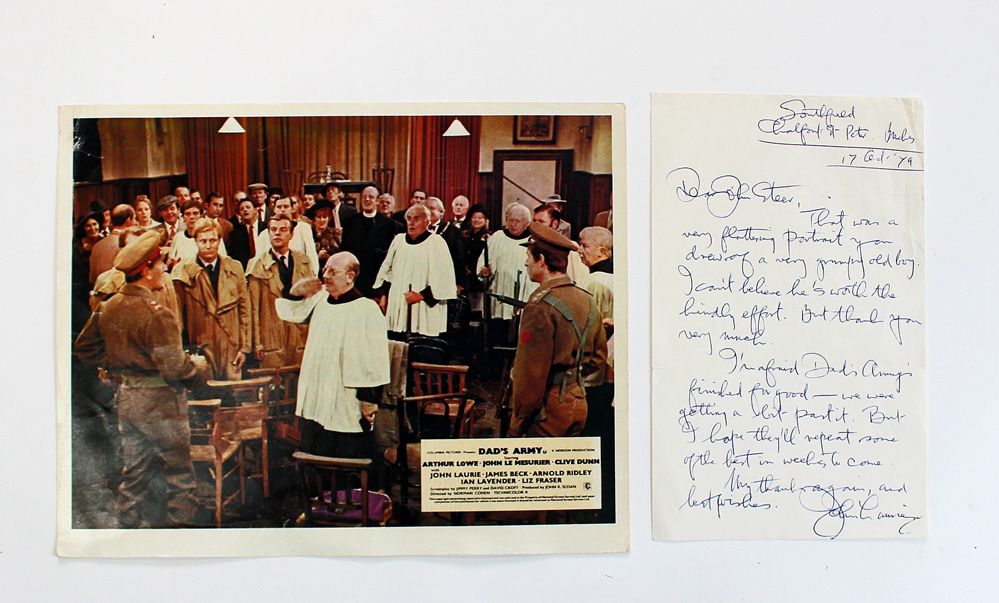 COLUMBIA PICTURES Presents DAD'S ARMY U A NORCON PRODUCTION
Starring
ARTHUR LOWE · JOHN LE MESURIER · CLIVE DUNN
with
JOHN LAURIE · JAMES BECK · ARNOLD RIDLEY
IAN LAVENDER · LIZ FRASER
Screenplay by JIMMY PERRY and DAVID CROFT Produced by JOHN R. SLOAN
Directed by NORMAN COHEN TECHNICOLOR
Southfield
Chalfont St Peter. Bucks
17 Oct '79
Dear John Steer,
That was a
very flattering portrait you
drew of a very grumpy old boy.
I can't believe he's worth the
kindly effort. But thank you
very much.
I'm afraid Dad's Army's
finished for good — we were
getting a bit past it. But
I hope they'll repeat some
of the best in weeks to come.
My thanks again, and
best wishes. John Laurie